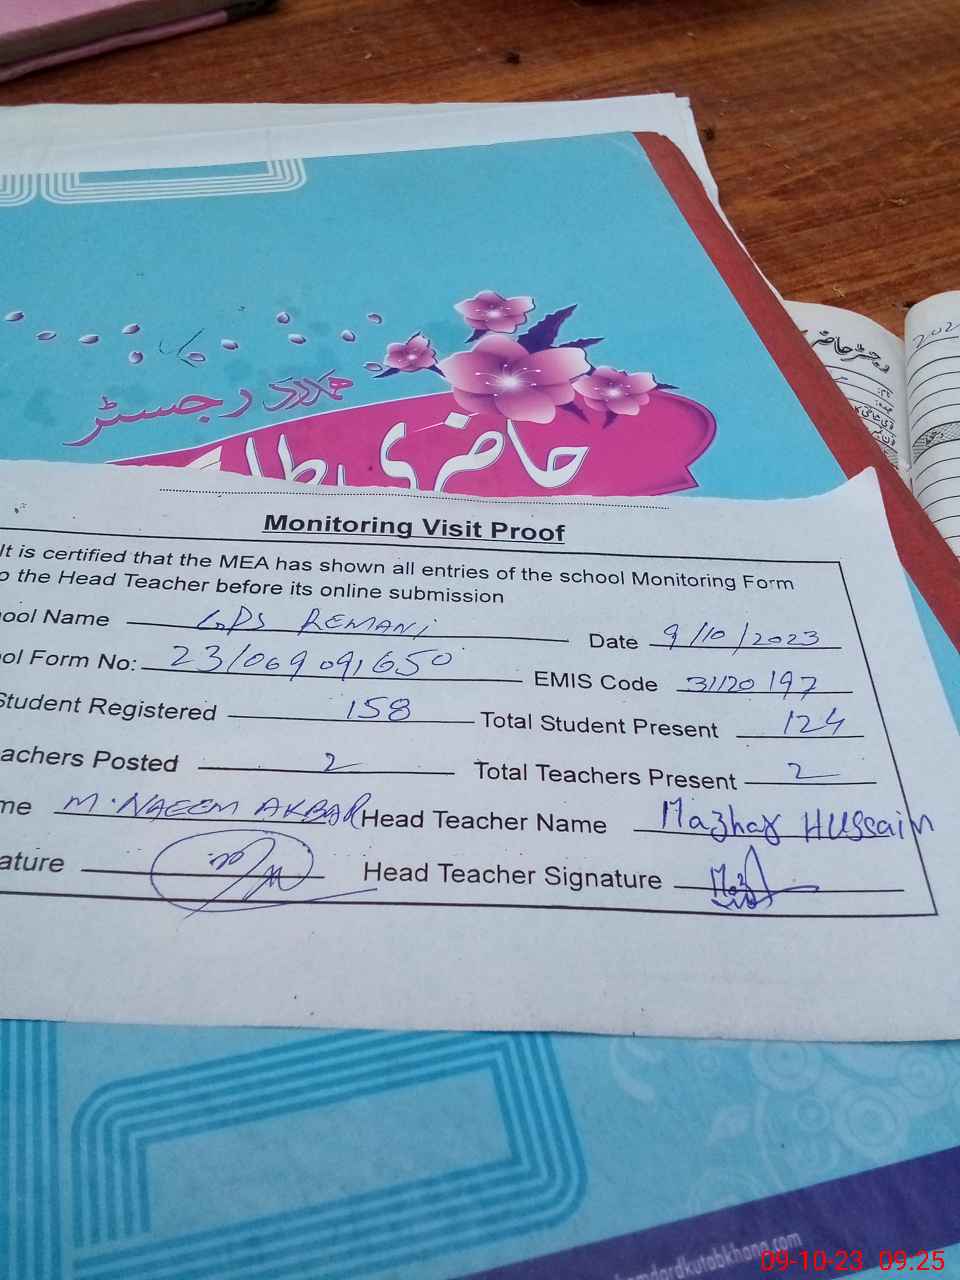 2023
رجسٹر حاضری
ہمدرد رجسٹر
حاضری
Monitoring Visit Proof
It is certified that the MEA has shown all entries of the school Monitoring Form
o the Head Teacher before its online submission
ool Name GPS REMANI Date 9/10/2023
ol Form No: 23/069091650 EMIS Code 31120197
Student Registered 158 Total Student Present 124
eachers Posted 2 Total Teachers Present 2
me M. NAEEM AKBAR Head Teacher Name Mazhar HUSSain
ature Head Teacher Signature
hamdardkutabkhana.com
09-10-23 09:25